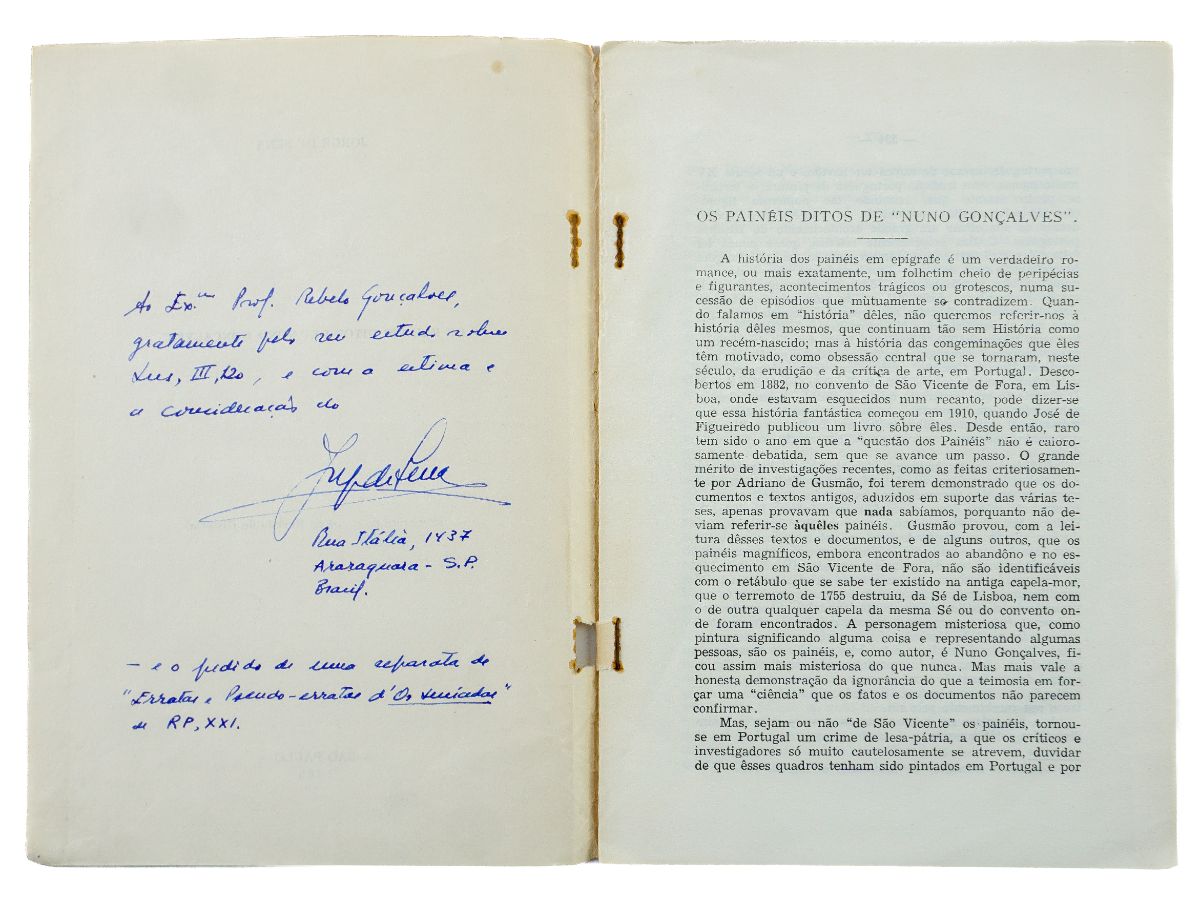 Ao Ex.mo Prof. Rebelo Gonçalves,
gratamente pelo seu estudo sobre
Lus, III, 120, e com a estima e
a consideração do
Jorge de Sena
Rua Itália, 1437
Araraquara - S.P.
Brasil.
— e o pedido de uma separata de
"Erratas e Pseudo-erratas d'Os Lusíadas"
de RP, XXI.
OS PAINÉIS DITOS DE "NUNO GONÇALVES".
A história dos painéis em epígrafe é um verdadeiro ro-
mance, ou mais exatamente, um folhetim cheio de peripécias
e figurantes, acontecimentos trágicos ou grotescos, numa su-
cessão de episódios que mùtuamente se contradizem. Quan-
do falamos em "história" dêles, não queremos referir-nos à
história dêles mesmos, que continuam tão sem História como
um recém-nascido; mas à história das congeminações que êles
têm motivado, como obsessão central que se tornaram, neste
século, da erudição e da crítica de arte, em Portugal. Desco-
bertos em 1882, no convento de São Vicente de Fora, em Lis-
boa, onde estavam esquecidos num recanto, pode dizer-se
que essa história fantástica começou em 1910, quando José de
Figueiredo publicou um livro sôbre êles. Desde então, raro
tem sido o ano em que a "questão dos Painéis" não é caloro-
samente debatida, sem que se avance um passo. O grande
mérito de investigações recentes, como as feitas criteriosamen-
te por Adriano de Gusmão, foi terem demonstrado que os do-
cumentos e textos antigos, aduzidos em suporte das várias te-
ses, apenas provavam que nada sabíamos, porquanto não de-
viam referir-se àquêles painéis. Gusmão provou, com a lei-
tura dêsses textos e documentos, e de alguns outros, que os
painéis magníficos, embora encontrados ao abandôno e no es-
quecimento em São Vicente de Fora, não são identificáveis
com o retábulo que se sabe ter existido na antiga capela-mor,
que o terremoto de 1755 destruiu, da Sé de Lisboa, nem com
o de outra qualquer capela da mesma Sé ou do convento on-
de foram encontrados. A personagem misteriosa que, como
pintura significando alguma coisa e representando algumas
pessoas, são os painéis, e, como autor, é Nuno Gonçalves, fi-
cou assim mais misteriosa do que nunca. Mas mais vale a
honesta demonstração da ignorância do que a teimosia em for-
çar uma "ciência" que os fatos e os documentos não parecem
confirmar.
Mas, sejam ou não "de São Vicente" os painéis, tornou-
se em Portugal um crime de lesa-pátria, a que os críticos e
investigadores só muito cautelosamente se atrevem, duvidar
de que êsses quadros tenham sido pintados em Portugal e por